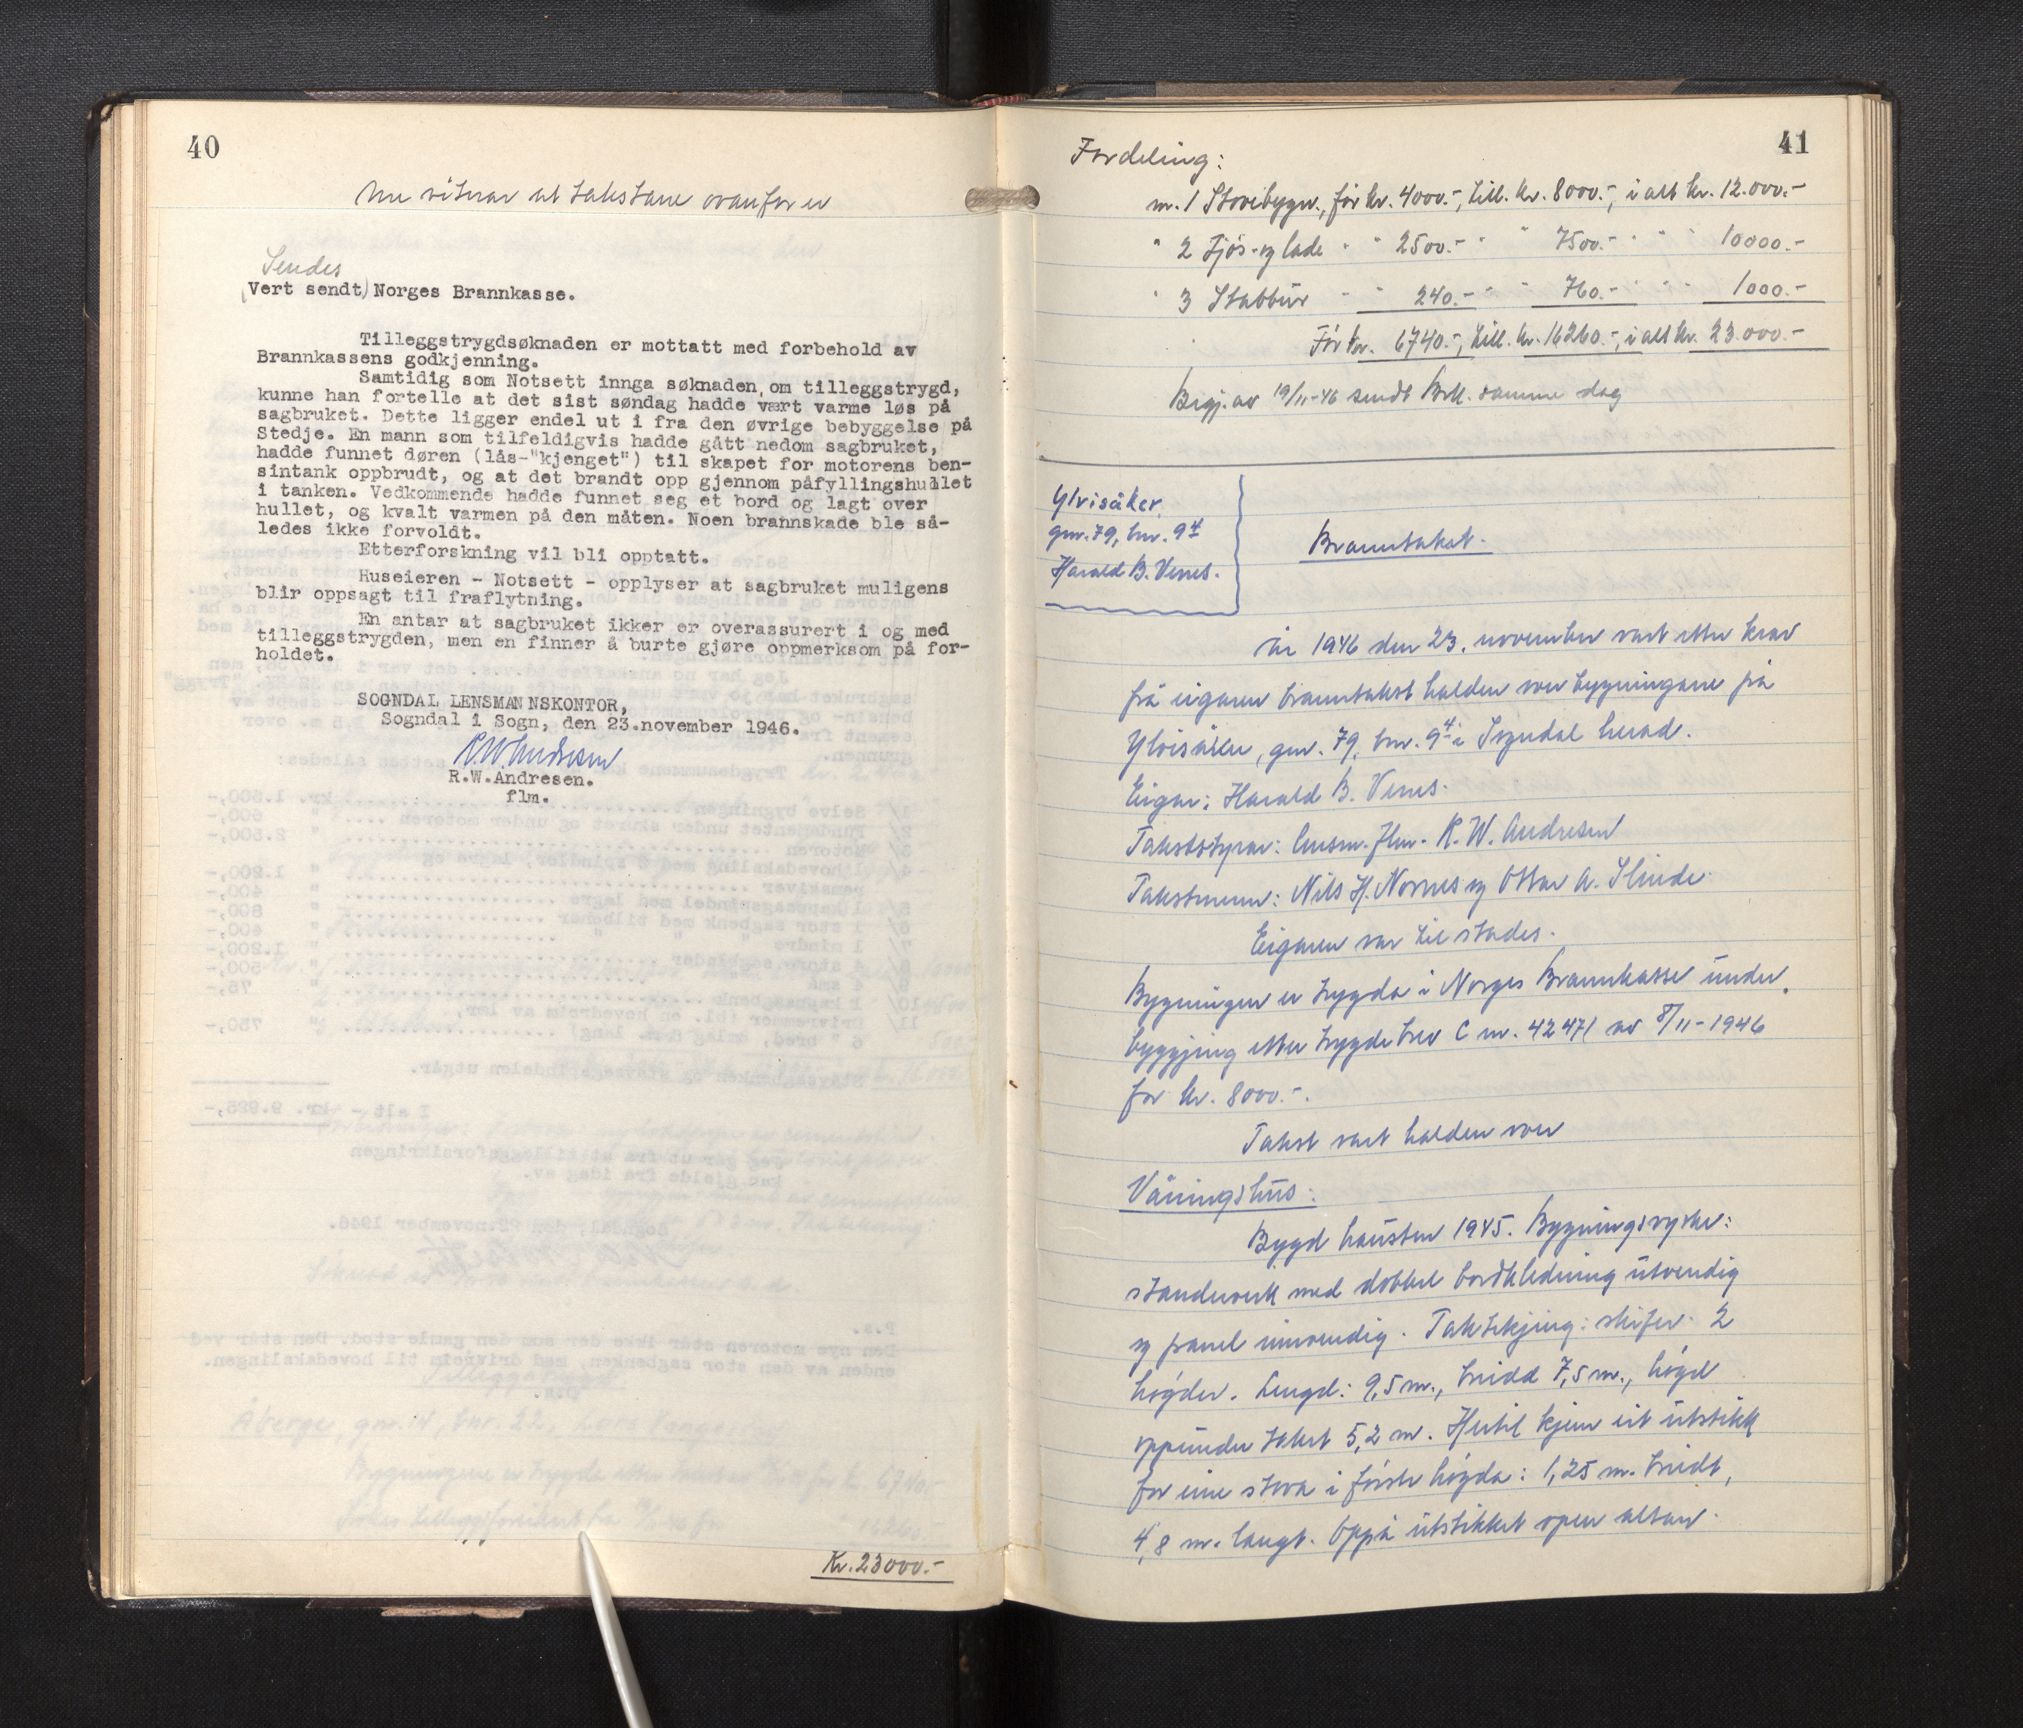 40
Me vitnar at takstane ovanfor er
Sendes
(Vert sendt) Norges Brannkasse.
Tilleggstrygdsøknaden er mottatt med forbehold av
Brannkassens godkjenning.
Samtidig som Notsett innga søknaden om tilleggstrygd,
kunne han fortelle at det sist søndag hadde vært varme løs på
sagbruket. Dette ligger endel ut i fra den øvrige bebyggelse på
Stedje. En mann som tilfeldigvis hadde gått nedom sagbruket,
hadde funnet døren (lås-"kjenget") til skapet for motorens ben-
sintank oppbrudt, og at det brandt opp gjennom påfyllingshullet
i tanken. Vedkommende hadde funnet seg et bord og lagt over
hullet, og kvalt varmen på den måten. Noen brannskade ble så-
ledes ikke forvoldt.
Etterforskning vil bli opptatt.
Huseieren - Notsett - opplyser at sagbruket muligens
blir oppsagt til fraflytning.
En antar at sagbruket ikker er overassurert i og med
tilleggstrygden, men en finner å burte gjøre oppmerksom på for-
holdet.
SOGNDAL LENSMANNSKONTOR,
Sogndal i Sogn, den 23.november 1946.
R.W.Andresen
R.W.Andresen.
flm.
Kr. 23000.-
41
Fordeling:
nr. 1 Stovebygn., før kr. 4000.-, till. kr. 8000.-, i alt kr. 12.000.-
" 2 Fjøs og lade " " 2500.- " " 7500.- " " " 10000.-
" 3 Stabbur " " 240.- " " 760.- " " " 1000.-
Før kr. 6740.-, till. kr. 16260.-, i alt kr. 23.000.-
Begj. av 19/11-46 sendt Brk. samme dag
Ylvisåker,
gnr. 79, bnr. 94
Harald B. Venes.
Branntakst.
År 1946 den 23. november vart etter krav
frå eigaren branntakst halden over bygningane på
Ylvisåker, gnr. 79, bnr. 94 i Sogndal herad.
Eigar: Harald B. Venes.
Takststyrar: lensm. flm. R. W. Andresen
Takstmenn: Nils H. Nornes og Ottar A. Slinde.
Eigaren var til stades.
Bygningen er trygda i Norges Brannkasse under
byggjing etter trygdebrev C nr. 42471 av 8/11-1946
for kr. 8000.-.
Takst vart halden over
Våningshus:
Bygd hausten 1945. Bygningsvyrke:
standerverk med dobbel bordkledning utvendig
og panel innvendig. Taktekjing: skifer. 2
høgder. Lengd: 9,5 m., breidd 7,5 m., høgd
oppunder taket 5,2 m. Hertil kjem eit utstikk
for eine stova i første høgda: 1,25 m. breidt,
4,8 m. langt. Oppå utstikket open altan.